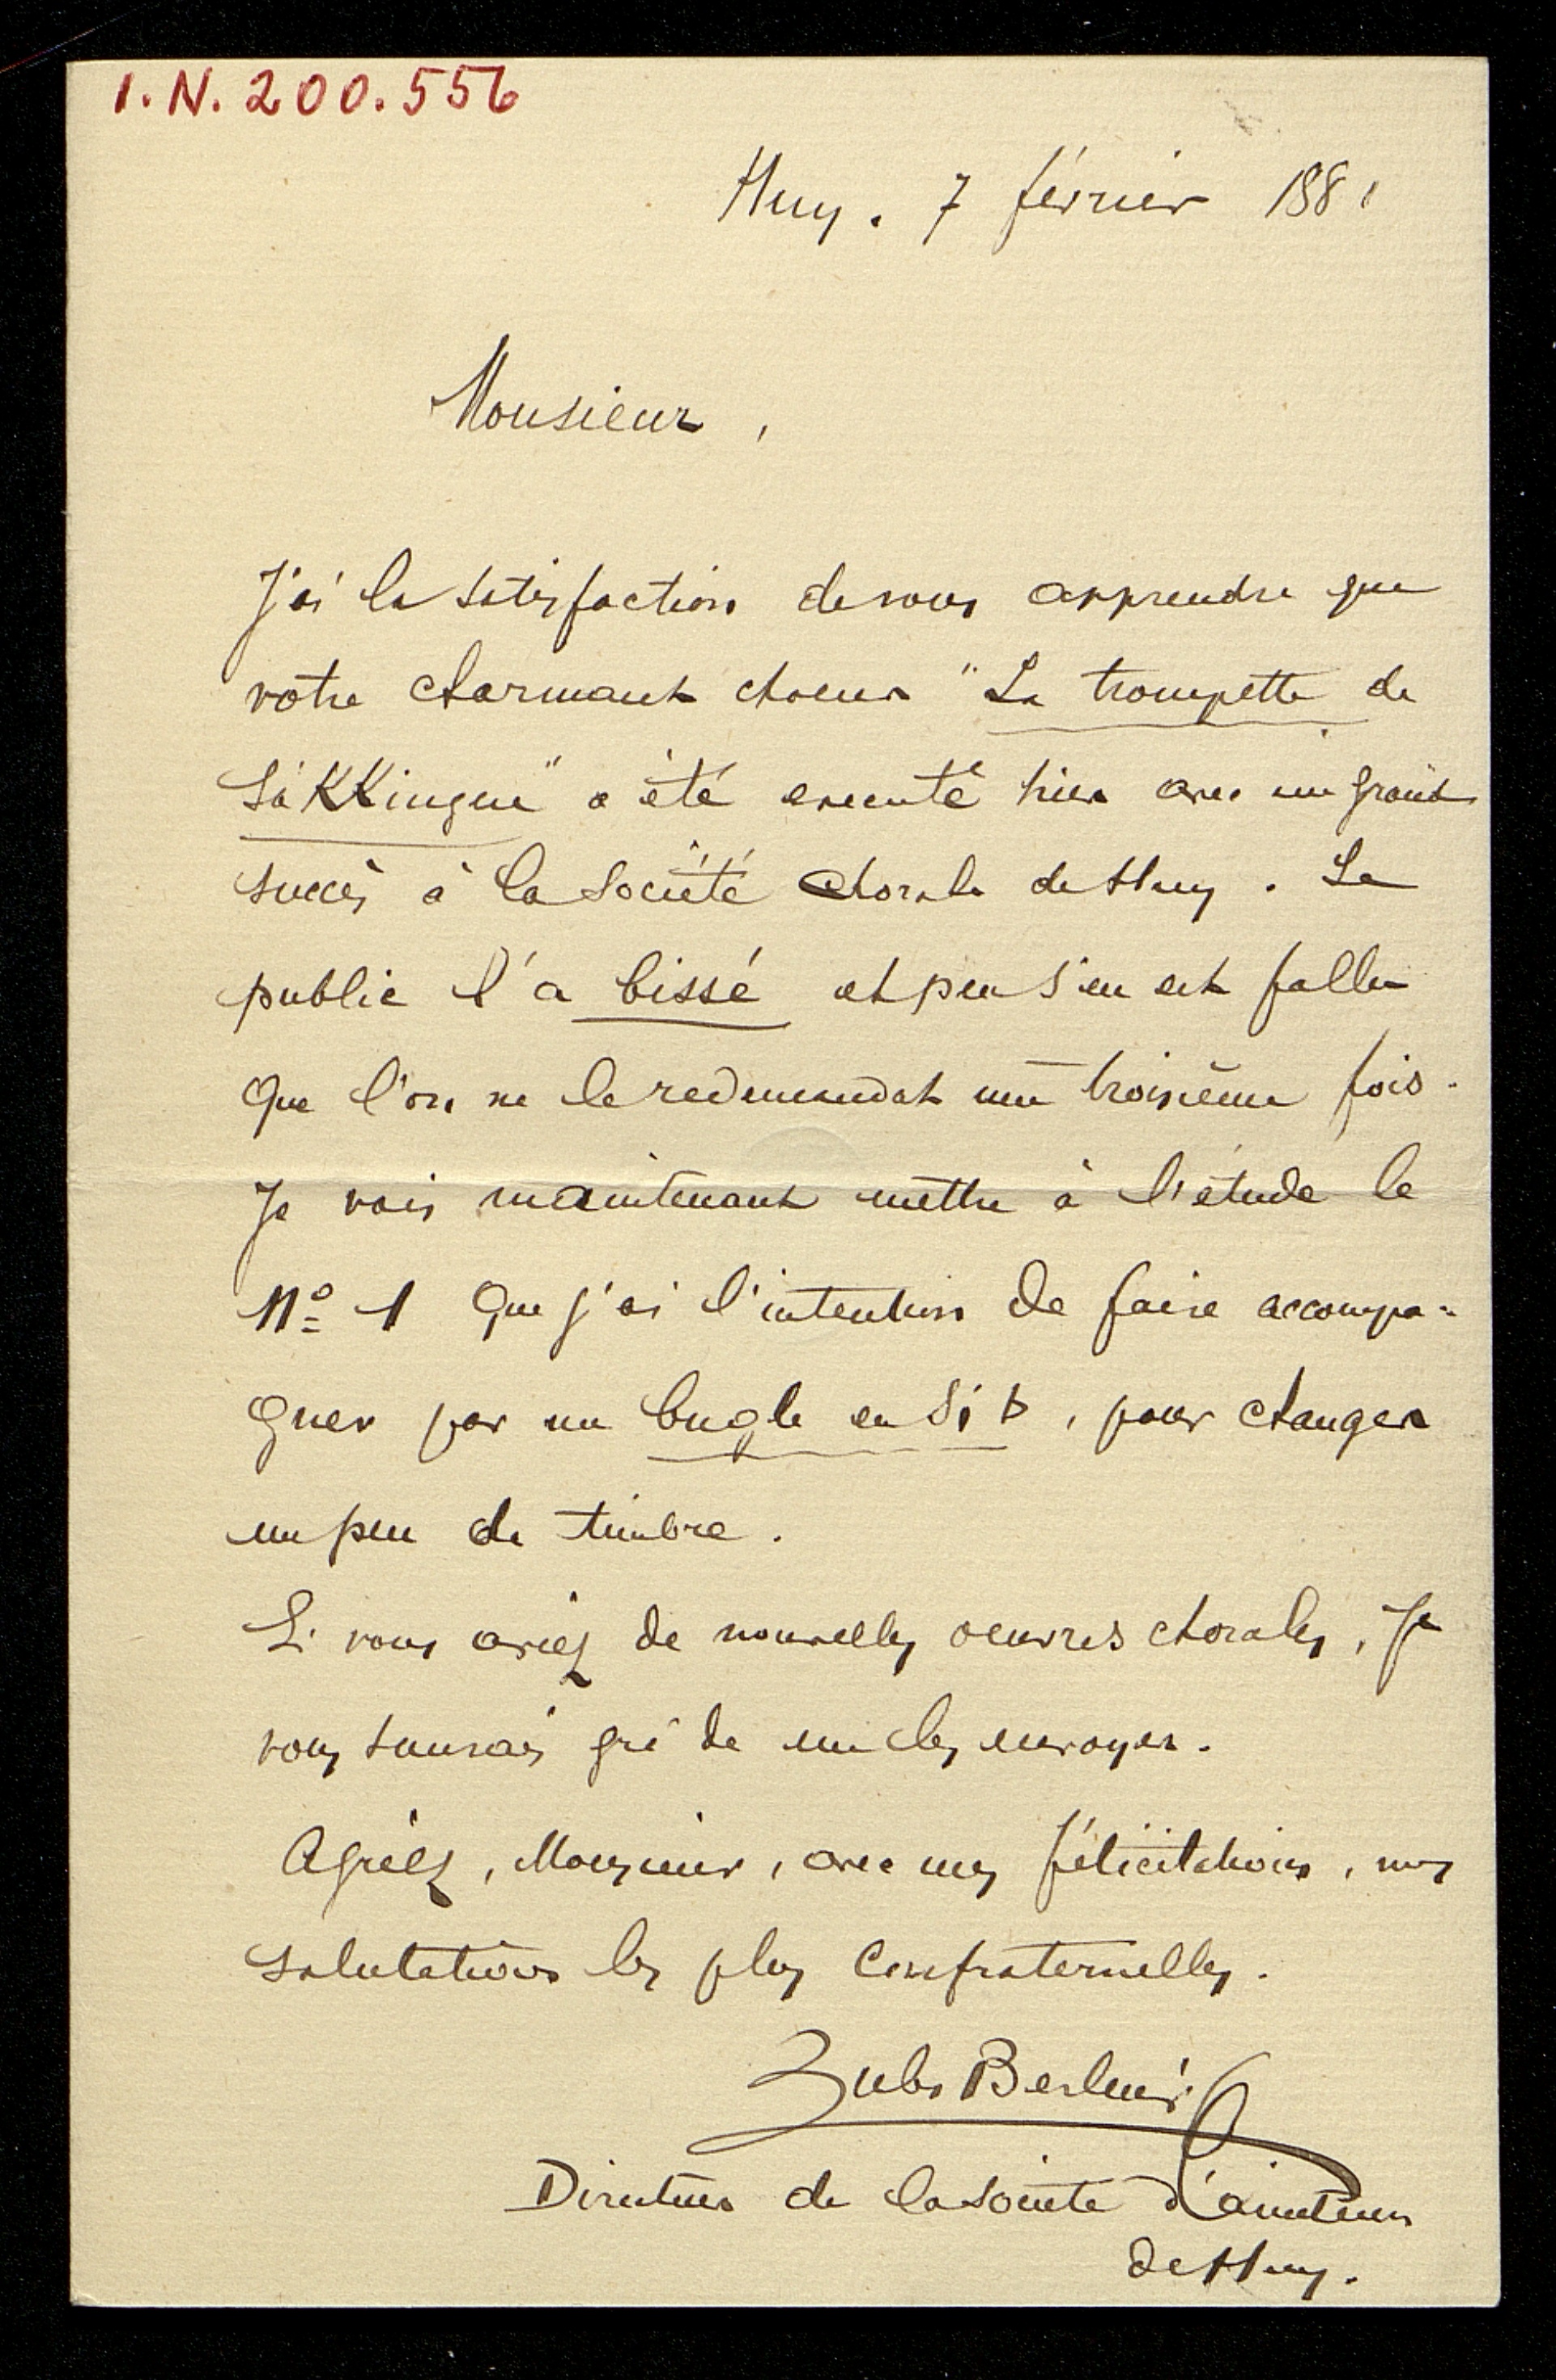 I.N. 200.556
Huy. 7 février 1881
Monsieur,
J'ai la satisfaction de vous apprendre que
votre charmant choeur "La trompette de
Säkkingen" a été executé hier avec un grand
succès à la Société chorale de Huy. Le
public l'a bissé et peu s'en est fallu
que l'on ne le redemandat une troisième fois.
Je vais maintenant mettre à l'étude le
No 1 que j'ai l'intention de faire accompa-
gner par un bugle en si b, pour changer
un peu de timbre.
Si vous aviez de nouvelles oeuvres chorales, je
vous saurais gré de me les envoyer.
Agréez, Monsieur, avec mes félicitations, mes
salutations les plus confraternelles.
Jules
Directeur de la Société d'amateurs
de Huy.